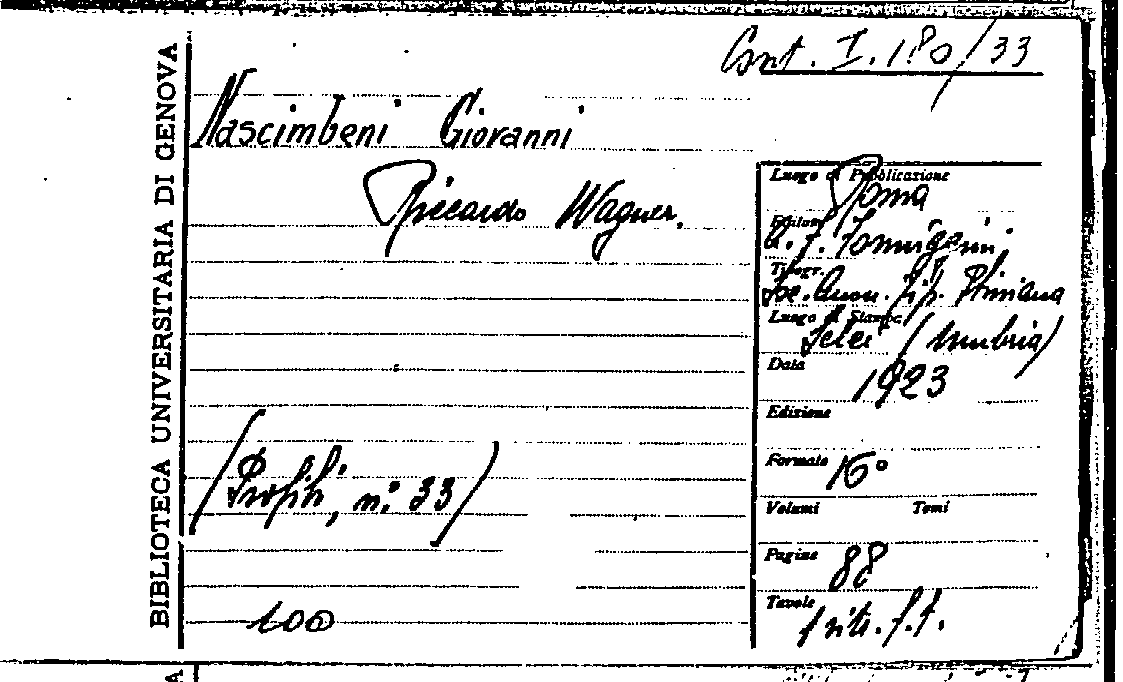 BIBLIOTECA UNIVERSITARIA DI GENOVA
Cont. I. 180/33
Nascimbeni Giovanni
Riccardo Wagner.
(Profili, n.° 33)
100
Luogo di Pubblicazione Roma
Editore A. F. Formiggini.
Tipogr. Soc. Anon. Tip. Pliniana
Luogo di Stampa Selci (Umbria)
Data 1923
Edizione
Formato 16°
Volumi Tomi
Pagine 88
Tavole 1 ritr. f. t.
A